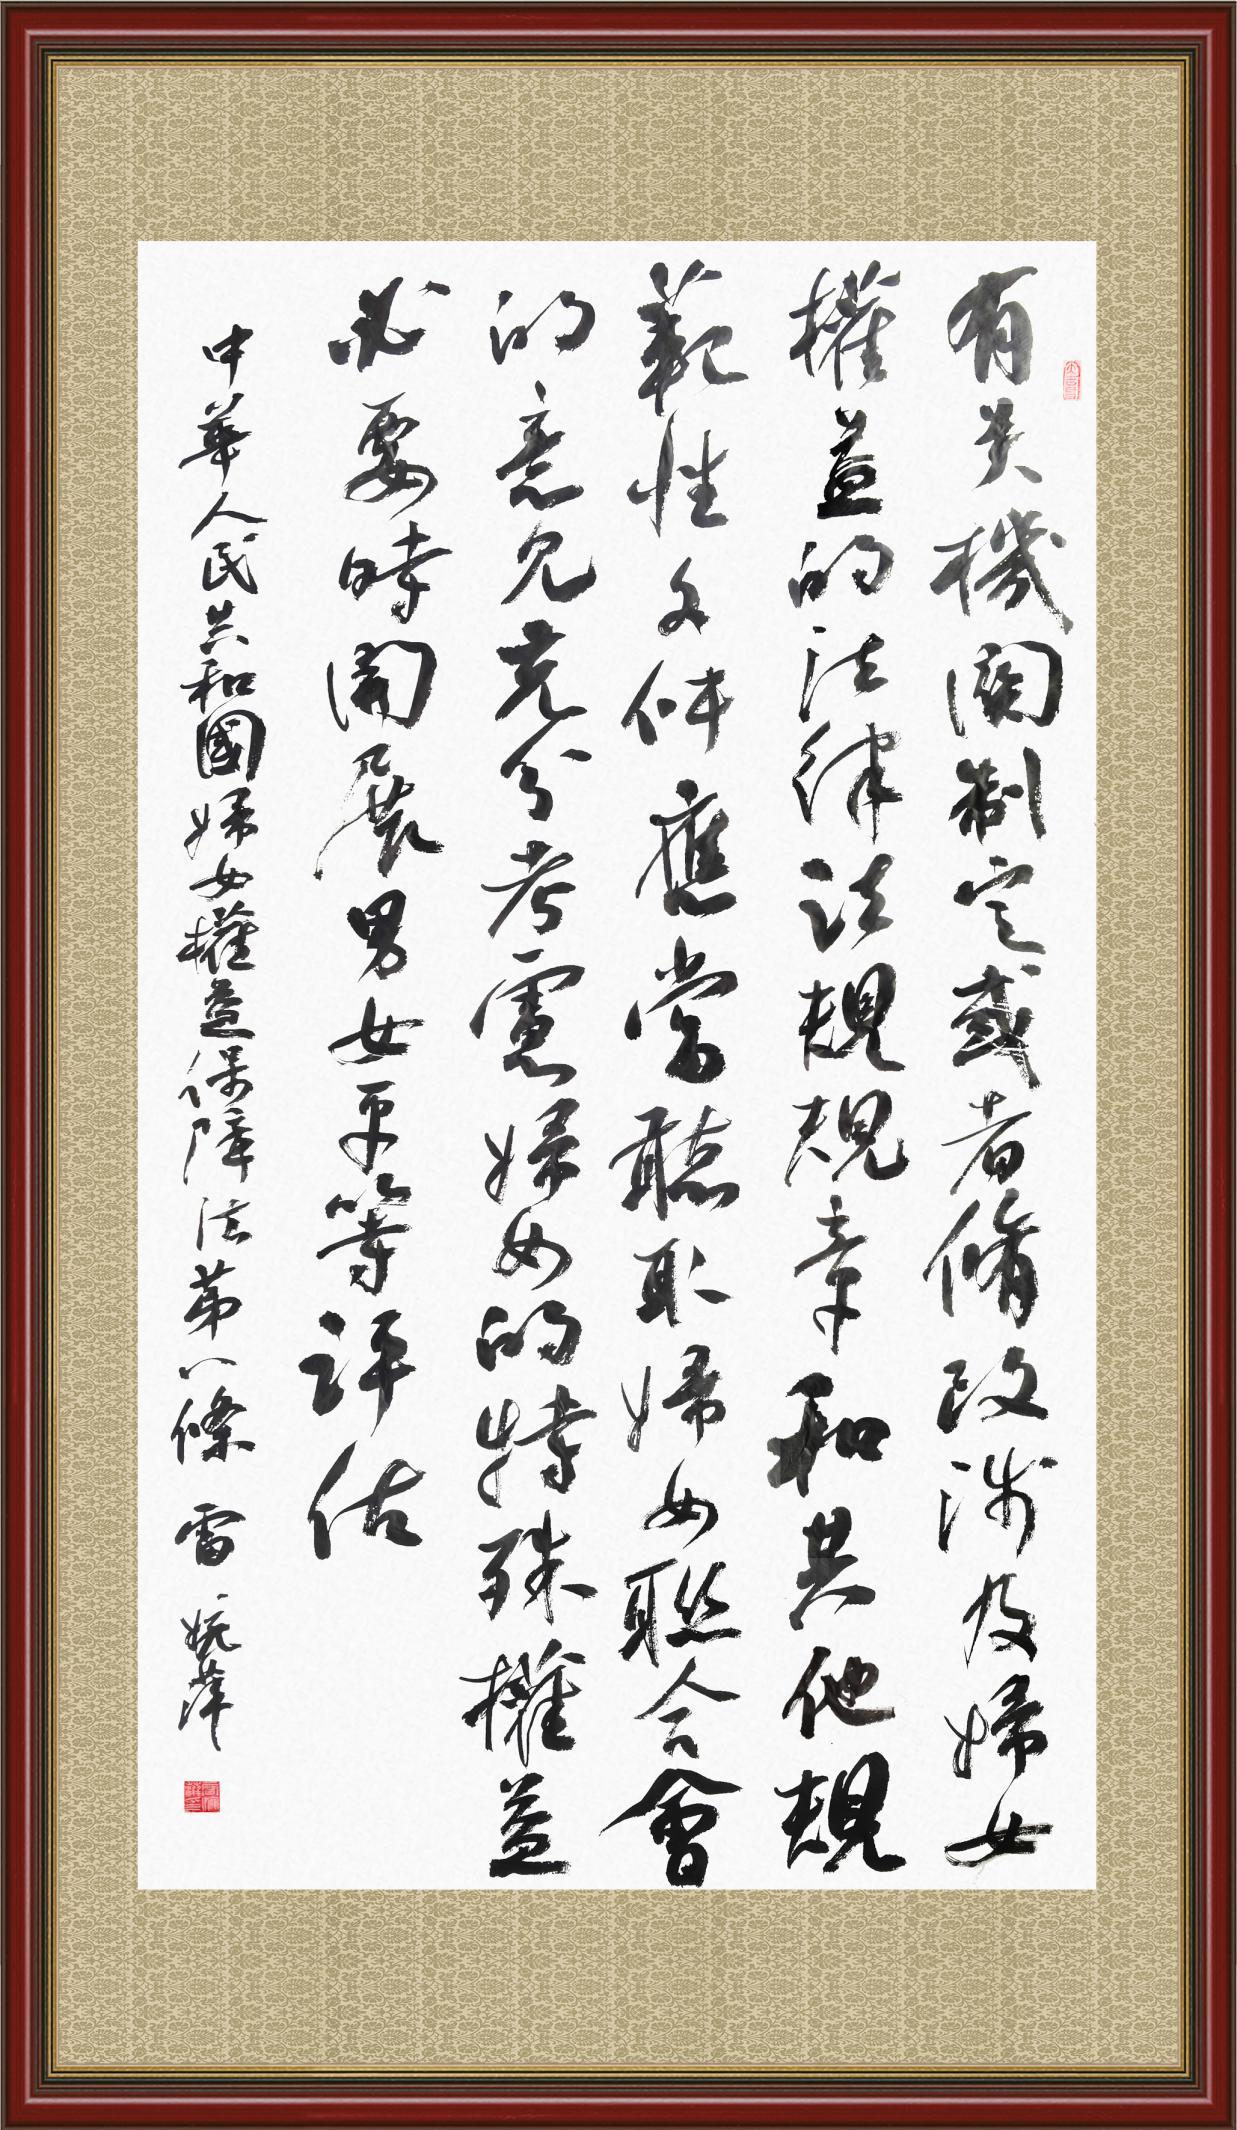 有关機關制定或者脩改涉及婦女
權益的法律法規規章和其他規
範性文件應當聽取婦女聯合會
的意見充分考慮婦女的特殊權益
必要時開展男女平等評估
中華人民共和國婦女權益保障法第八條 雷婉萍